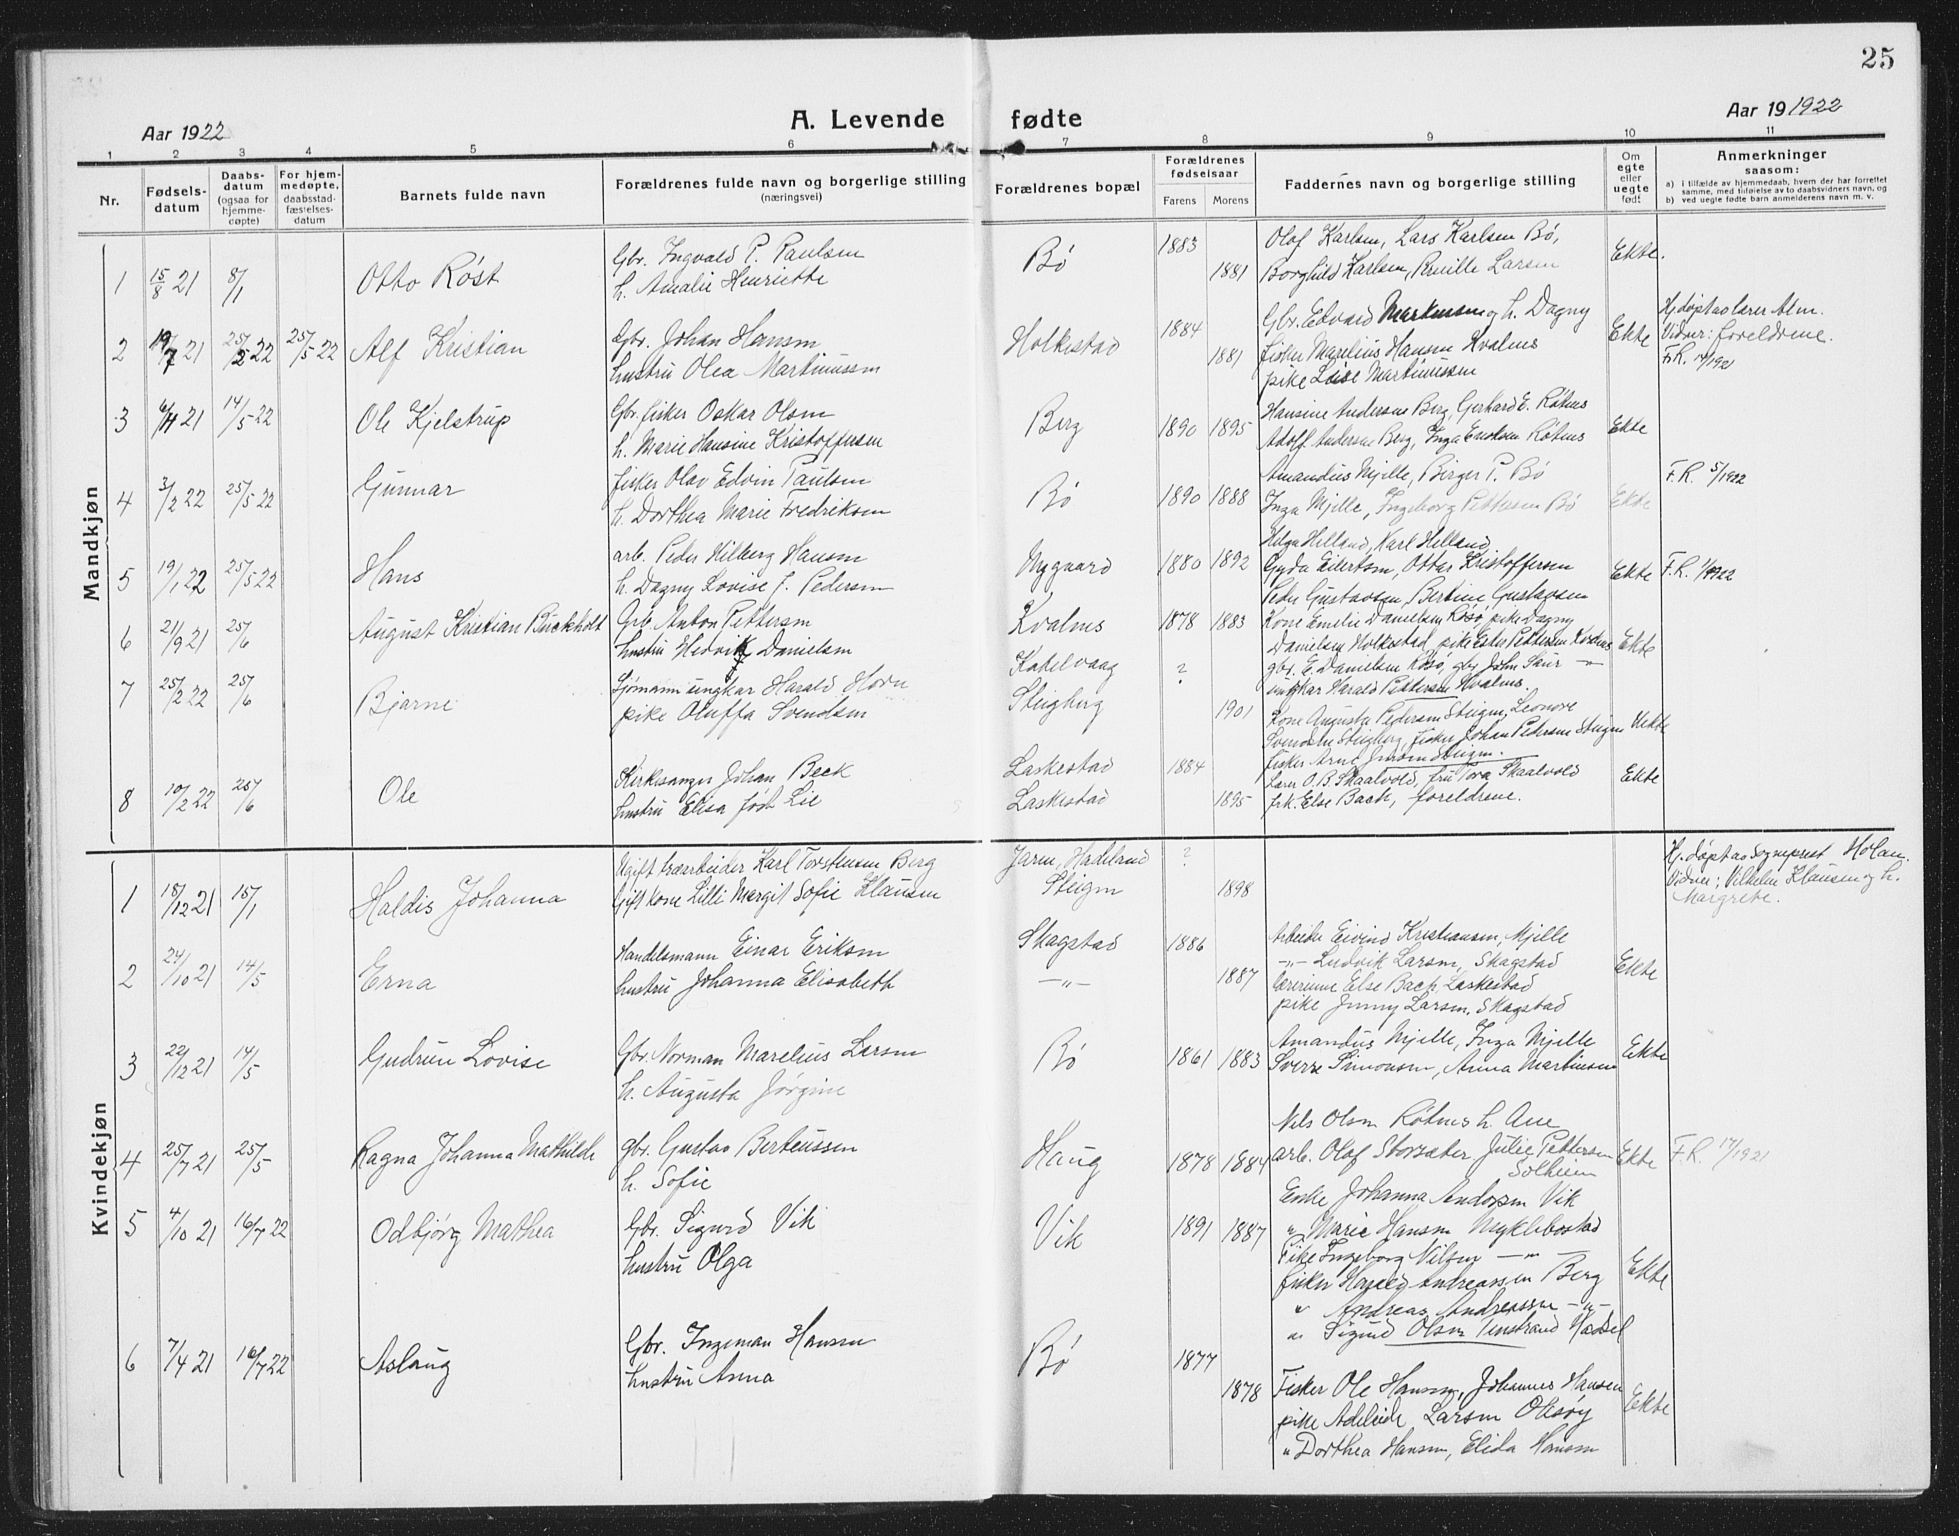 25
Aar 1922
A. Levende fødte
Aar 19 1922
1 2 3 4 5 6 7 8 9 10 11
Nr.
Fødsels-
datum
Daabs-
datum
(ogsaa for
hjemme-
døpte)
For hjem-
medøpte,
daabsstad-
fæstelses-
datum
Barnets fulde navn
Forældrenes fulde navn og borgerlige stilling
(næringsvei)
Forældrenes bopæl
Forældrenes
fødselsaar
Farens Morens
Faddernes navn og borgerlige stilling
Om
egte
eller
uegte
født
Anmerkninger
saasom:
a) i tilfælde av hjemmedaab, hvem der har forrettet
samme, med tilføielse av to daabsvidners navn, og
b) ved uegte fødte barn anmelderens navn m. v.
Mandkjøn
1 15/8 21 8/1 Otto Røst
Gbr. Ingvald P. Paulsen
h. Amalie Henriette
Bø
1883
1881
Olof Karlsen, Lars Karlsen Bø,
Borghild Karlsen, Pernille Larsen
Ekte.
2 19/7 21 25/5 22 25/5 22 Alf Kristian
Gbr. Johan Hansen
hustru Olea Martinussen
Holkestad
1884
1881
Gbr. Edvard Martinusen og h. Dagny
fisker Marelius Hansen Kvalnes
pike Loise Martinussen
Ekte
Hj. døpt av lærer Alm.
Vidner: foreldrene.
F.R. 14/1921
3 6/11 21 14/5 22 Ole Kjelstrup
Gbr. fisker Oskar Olsen
h. Marie Hansine Kristoffersen
Berg
1890 1895
Hansine Andersen Berg, Gerhard E. Røtnes
Adolf Andersen Berg, Inga Eriksen Røtnes
Ekte
4 3/2 22 25/5 22 Gunnar
fisker Olav Edvin Paulsen
h. Dorthea Marie Fredriksen
Bø
1890 1888
Amandus Mjelle, Birger P. Bø
Inga Mjelle, Ingeborg Pettersen Bø
Ekte
F.R. 5/1922
5 19/1 22 25/5 22 Hans
arb. Peder Hilberg Hansen
h. Dagny Lovise J. Pedersen
Nygaard
1880 1892
Helga Helland, Karl Helland
Gyda Eilertsen, Ottar Kristoffersen
Peder Gustavsen, Bertine Gustavsen
Ekte
F.R. 1/1922
6 21/9 21 25/6 August Kristian Buckholt
Gbr. Anton Pettersen
hustru Hedvik Danielsen
Kvalnes
1878 1883
Kone Emelie Danielsen Røsø, pike Dagny
Danielsen Holkestad, pike Ester Pettersen Kvalnes
gbr. E. Danielsen Røsø, gbr John Skir — " —
ungkar Harald Pettersen Kvalnes.
Ekte
7 25/2 22 25/6 Bjarne
Sjømann ungkar Harald Horn
pike Oluffa Svendsen
Kakelvaag
Steigberg
?
1901
Kone Augusta Pedersen Steigen, Leonore
Svendsen Steigberg, fisker Johan Pedersen Steigen
fisker Arne Jensen Steigen.
Uekte
8 10/2 22 25/6 Ole
Kirkesanger Johan Beck
hustru Elisa født Lie
Laskestad
Laskestad
1884
1895
Lærer O.B. Skaalvold, fru Tora Skaalvold
frk. Else Bach, foreldrene.
Ekte
Kvindekjøn
1 15/12 21 15/1 Haldis Johanna
Ugift braarbeider Karl Torstensen Berg
Gift kone Lilli Margit Sofie Klausen
Jaren, Hadeland
Steigen
?
1898
Hj. døpt av Sogneprest Holan.
Vidner: Vilhelm Klausen og h.
Margrete.
2 24/10 21 14/5 Erna
Handelsmann Einar Eriksen
hustru Johanna Elisabeth
Skagstad
— " —
1886
1887
Arbeider Eivind Kristiansen, Mjelle
— " — Ludvik Larsen, Skagstad
Lærerinne Else Bach, Laskestad
pike Jenny Larsen, Skagstad
Ekte
3 22/12 21 14/5 Gudrun Lovise
Gbr. Norman Marelius Larsen
h. Augusta Jørgine
Bø
1861 1883
Amandus Mjelle, Inga Mjelle
Sverre Simonsen, Anna Martinsen
Ekte
4 25/7 21 25/5 Ragna Johanna Mathilde
gbr. Gustav Berteussen
h. Sofie
Haug
1878 1884
Nils Olsen Røtnes h. Ane
arb. Olaf Storsæter, Julie Pettersen
Solheim
Ekte
F.R. 17/1921
5 4/10 21 16/7 22 Odbjørg Mathea
Gbr. Sigurd Vik
hustru Olga
Vik
1891 1887
Enke Johanna Andorsen Vik
" Marie Hansen Myklebostad
Pike Ingeborg Nilsen — " —
fisker Harald Andreassen Berg
" Andreas Andreassen — " —
" Sigurd Olsen Tenstrand Hadsel
Ekte
6 7/4 21 16/7 22 Aslaug
Gbr. Ingeman Hansen
hustru Anna
Bø
1877
1878
Fisker Ole Hansen, Johannes Hansen
pike Adeleide Larsen Oksøy
" Dorthea Hansen, Elida Hansen
Ekte